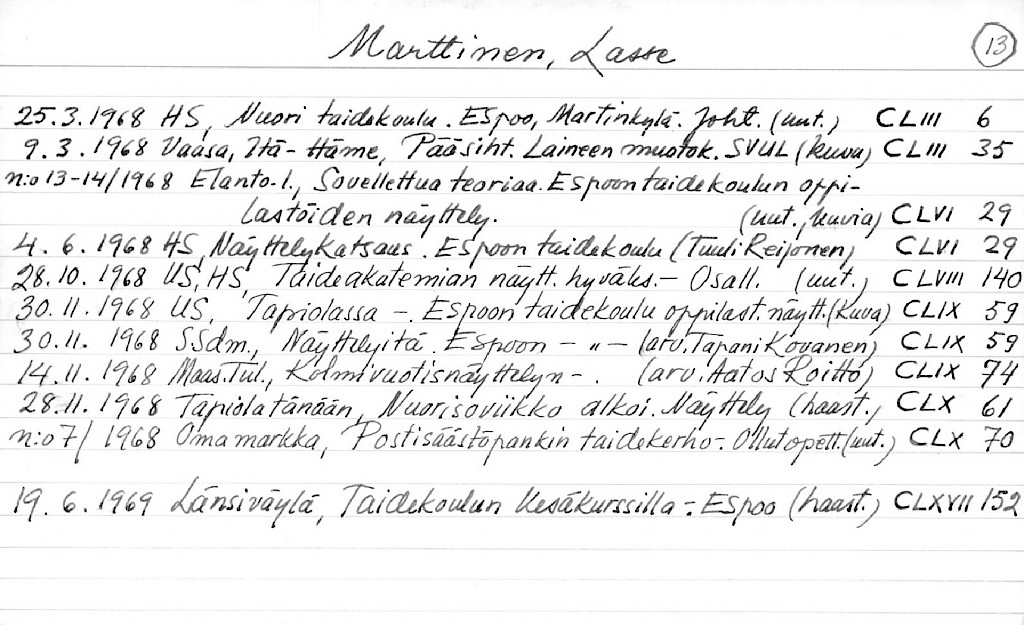 Marttinen, Lasse 13
25.3.1968 HS, Nuori taidekoulu. Espoo, Martinkylä. Joht. (uut.) CLIII 6
9.3.1968 Vaasa, Itä-Häme, Pääsiht. Laineen muotok. SVUL (kuva) CLIII 35
n:o 13-14/1968 Elanto-l., Sovellettua teoriaa. Espoon taidekoulun oppi-
lastöiden näyttely. (uut., kuvia) CLVI 29
4.6.1968 HS, Näyttelykatsaus. Espoon taidekoulu (Tuuli Reijonen) CLVI 29
28.10.1968 US, HS, Taideakatemian näytt. hyväks. - Osall. (uut.) CLVIII 140
30.11.1968 US, Tapiolassa -. Espoon taidekoulu oppilast. näytt. (kuva) CLIX 59
30.11.1968 SSdm., Näyttelyitä. Espoon - " - (arv. Tapani Kovanen) CLIX 59
14.11.1968 Maas.Tul., Kolmivuotisnäyttelyn -. (arv. Aatos Roitto) CLIX 74
28.11.1968 Tapiola tänään, Nuorisoviikko alkoi. Näyttely (haast.) CLX 61
n:o 7/1968 Oma markka, Postisäästöpankin taidekerho -. Ollut opett. (uut.) CLX 70
19.6.1969 Länsiväylä, Taidekoulun kesäkurssilla -. Espoo (haast.) CLXVII 152